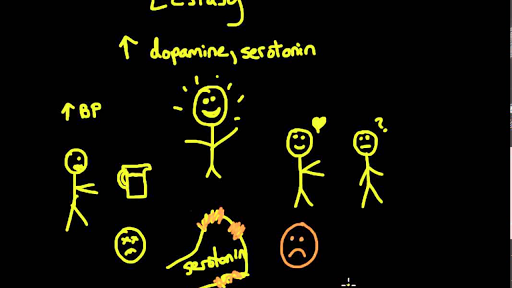 Ecstasy
↑ dopamine, serotonin
↑ BP
?
serotonin